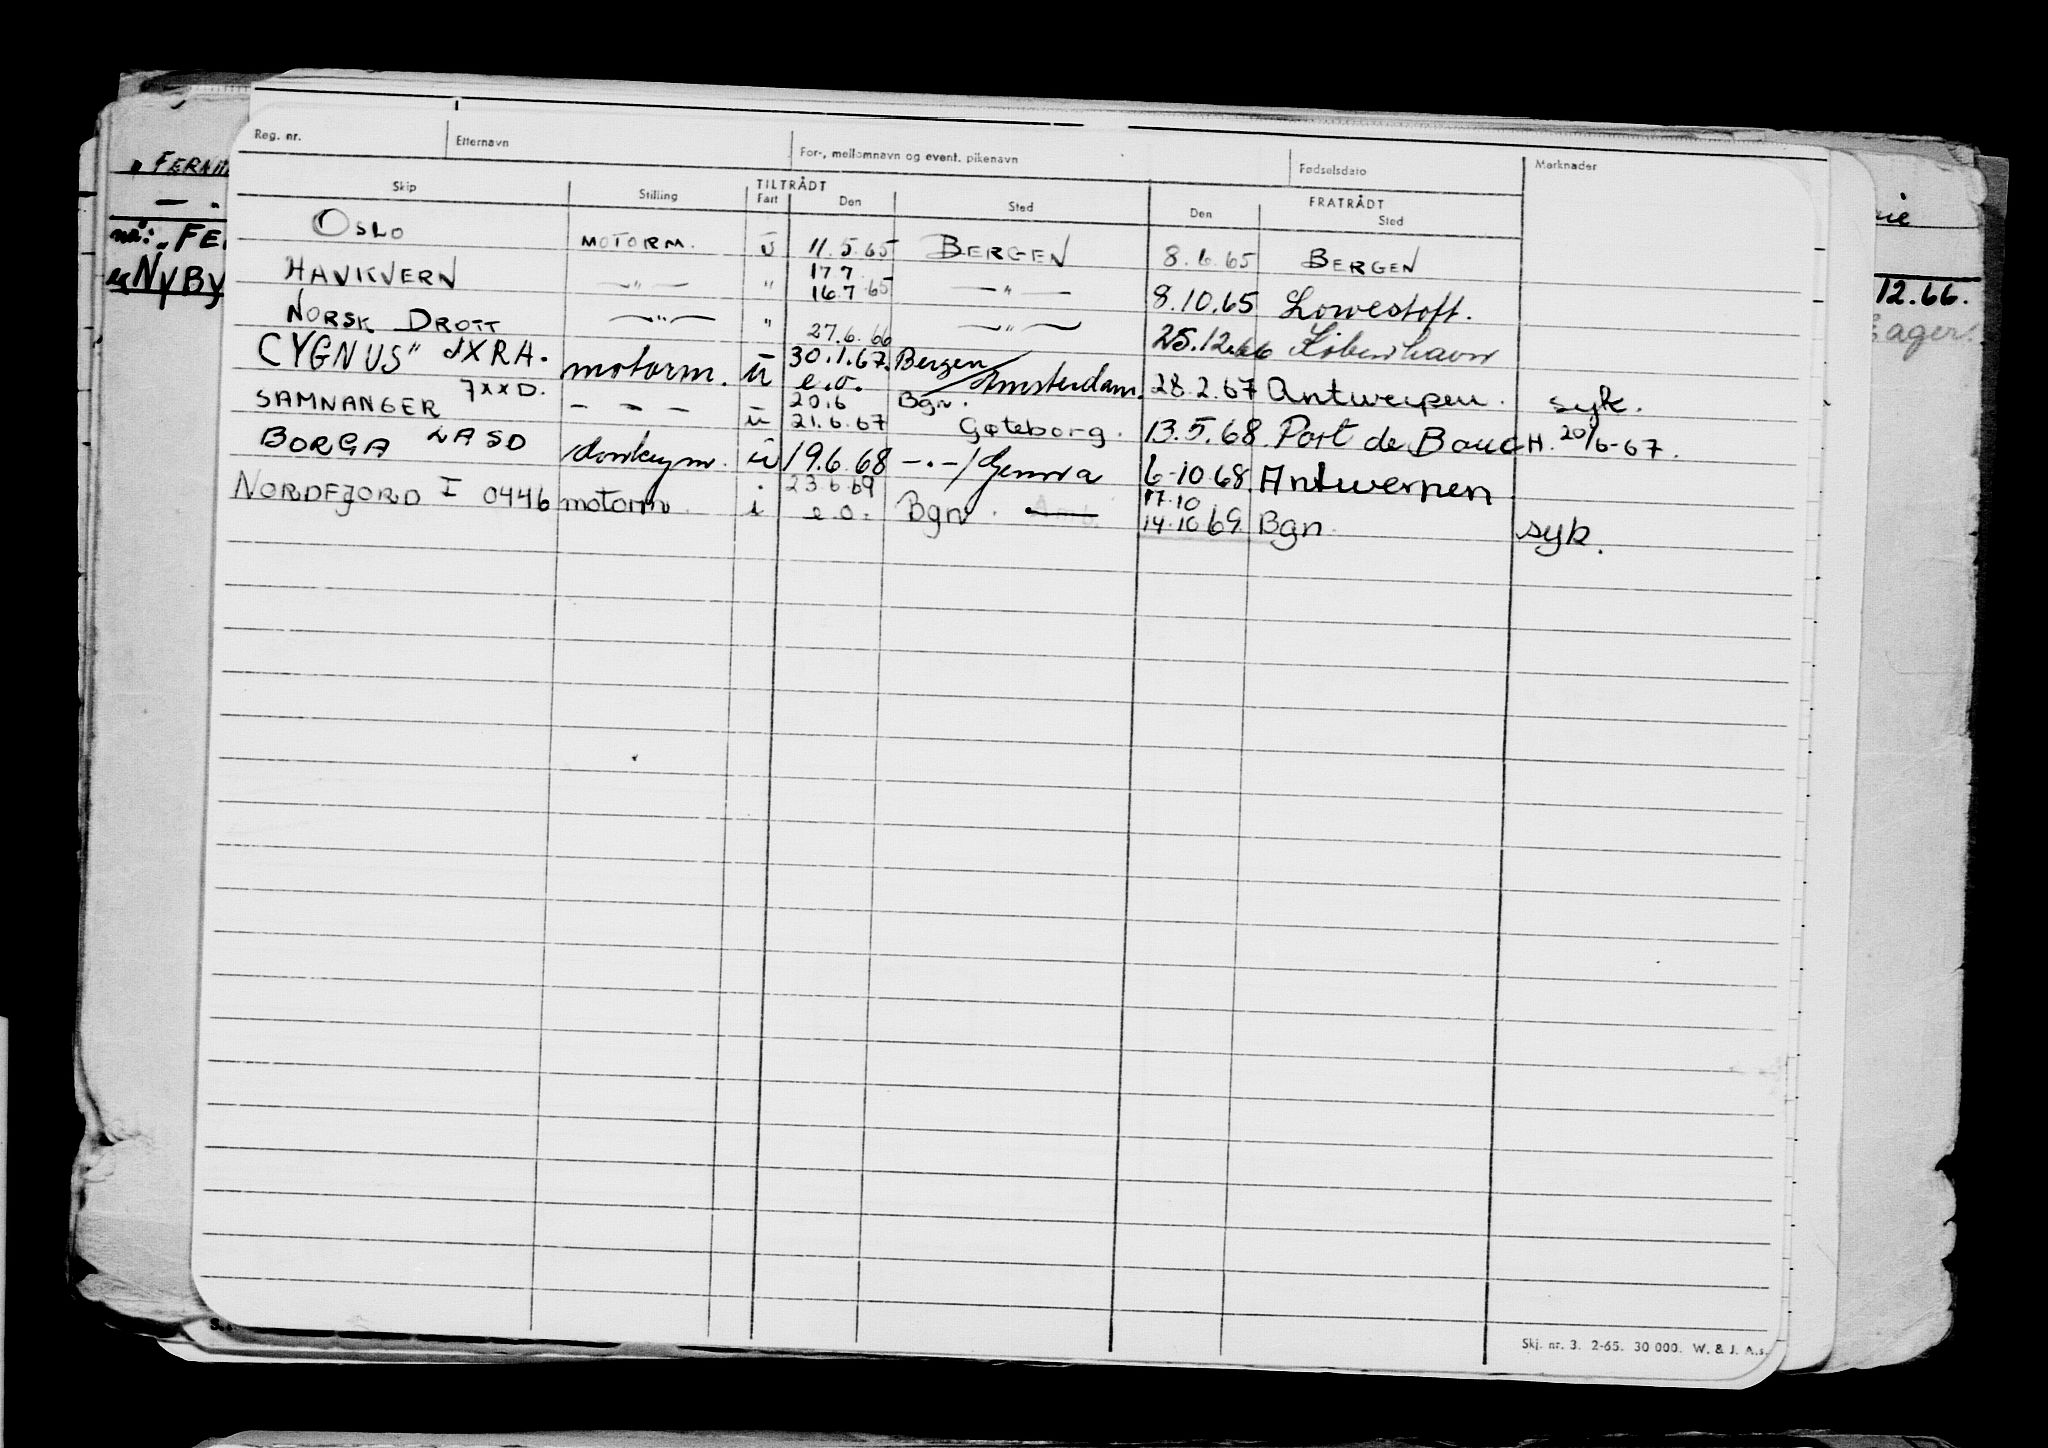 Reg. nr. Etternavn For-, mellomnavn og event. pikenavn Fødselsdato Merknader
Skip Stilling TILTRÅDT Fart Den Sted FRATRÅDT Den Sted
OSLO MOTORM. U 11.5.65 BERGEN 8.6.65 BERGEN
HAVKVERN —"— " 17.7 16.7 65 —"— 8.10.65 Lowestoft.
NORSK DROTT —"— " 27.6.66 —"— 25.12.66 København
CYGNUS" JXRA. motorm. u 30.1.67. e.o. Bergen/Amsterdam. 28.2.67 Antwerpen. syk.
SAMNANGER 7XXD. — — — u 20.6 21.6.67 Bgn. Gøteborg. 13.5.68 Port de BoucH. 20/6-67.
BORGA LASD donkeym. u 19.6.68 -.-/Genova 6-10 68. Antwerpen
NORDFJORD I 0446 motorm. i 23.6.69 e.o. Bgn. 17.10 14.10 69. Bgn. syk.
"FERNM
nå: "FE
"NYBY
12.66.
Skj. nr. 3. 2-65. 30 000. W. & J. A.s.